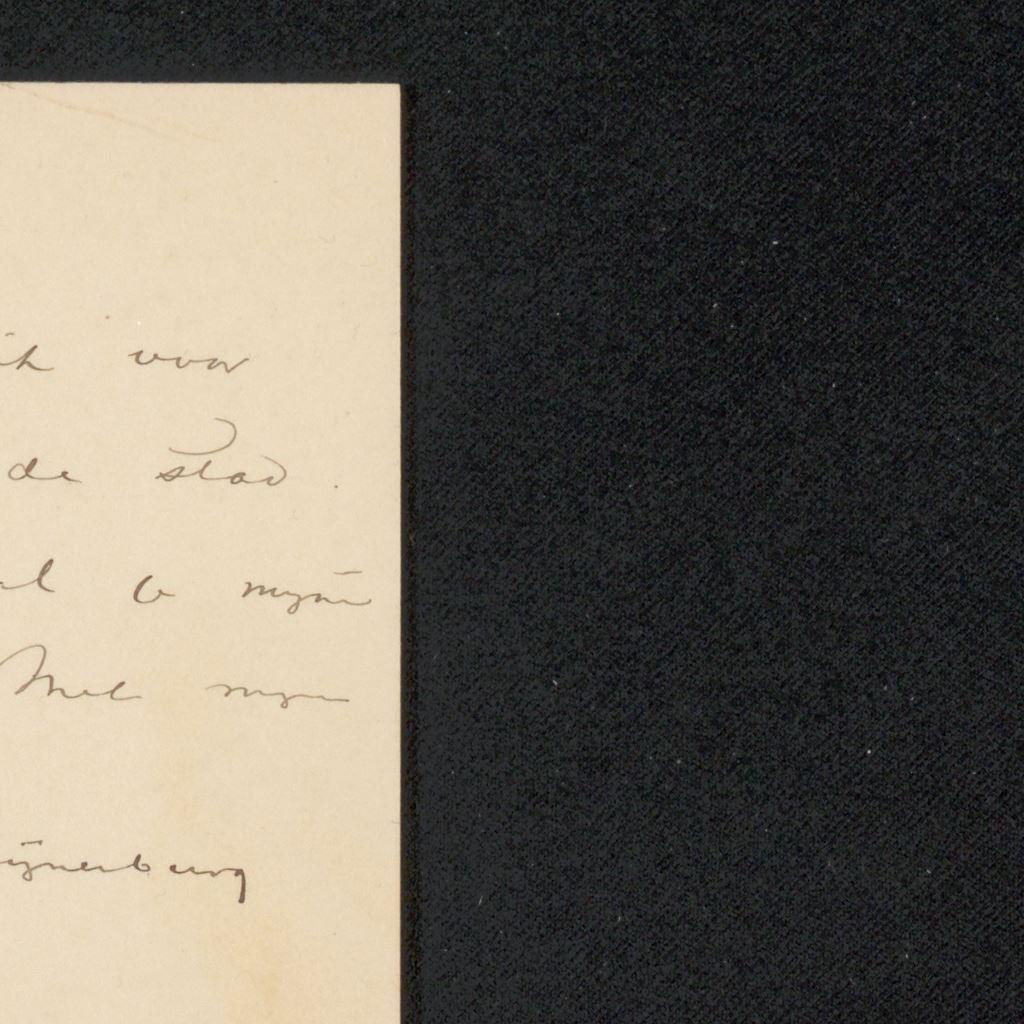 ik voor
de stad.
al U mijne
Met mijn
ijnenburg